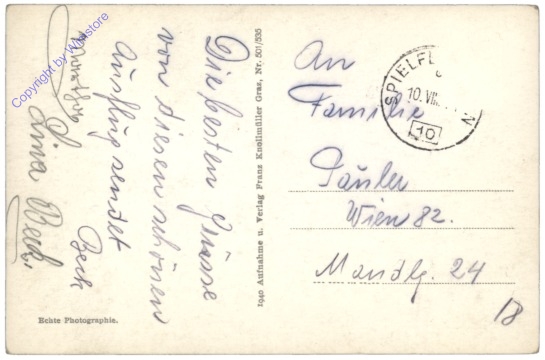 Die besten Grüsse
von diesen schönen
Ausflug sendet
Beck
Lina Beck.
An
Familie
Päuler
Wien 82.
Mandlg. 24
18
SPIELF
10. VIII.
10
N
1940 Aufnahme u. Verlag Franz Knollmüller Graz, Nr. 501/535
Echte Photographie.
Copyright by Wikistore